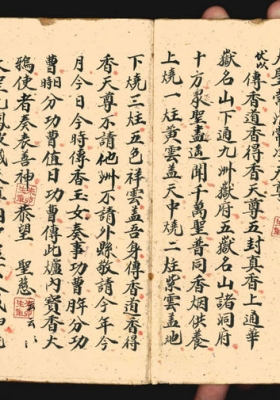 以傳香道香傳香天尊五封真香上通華
嶽名山下通九洲嶽府五嶽名山諸洞府
十方眾聖盡遙聞千萬聖普同香烟供養
上燒一炷黃雲盖天中燒二炷紫雲盖地
下燒三炷五色祥雲盖吾身傳香道香得
香天尊不請他洲不請外縣敬請今年今
月今日今時傳香玉女奏事功曹年分功
曹日時分功曹值日功曹傳此爐內寶香火
鴉使者奏表善神 拜望 聖慈